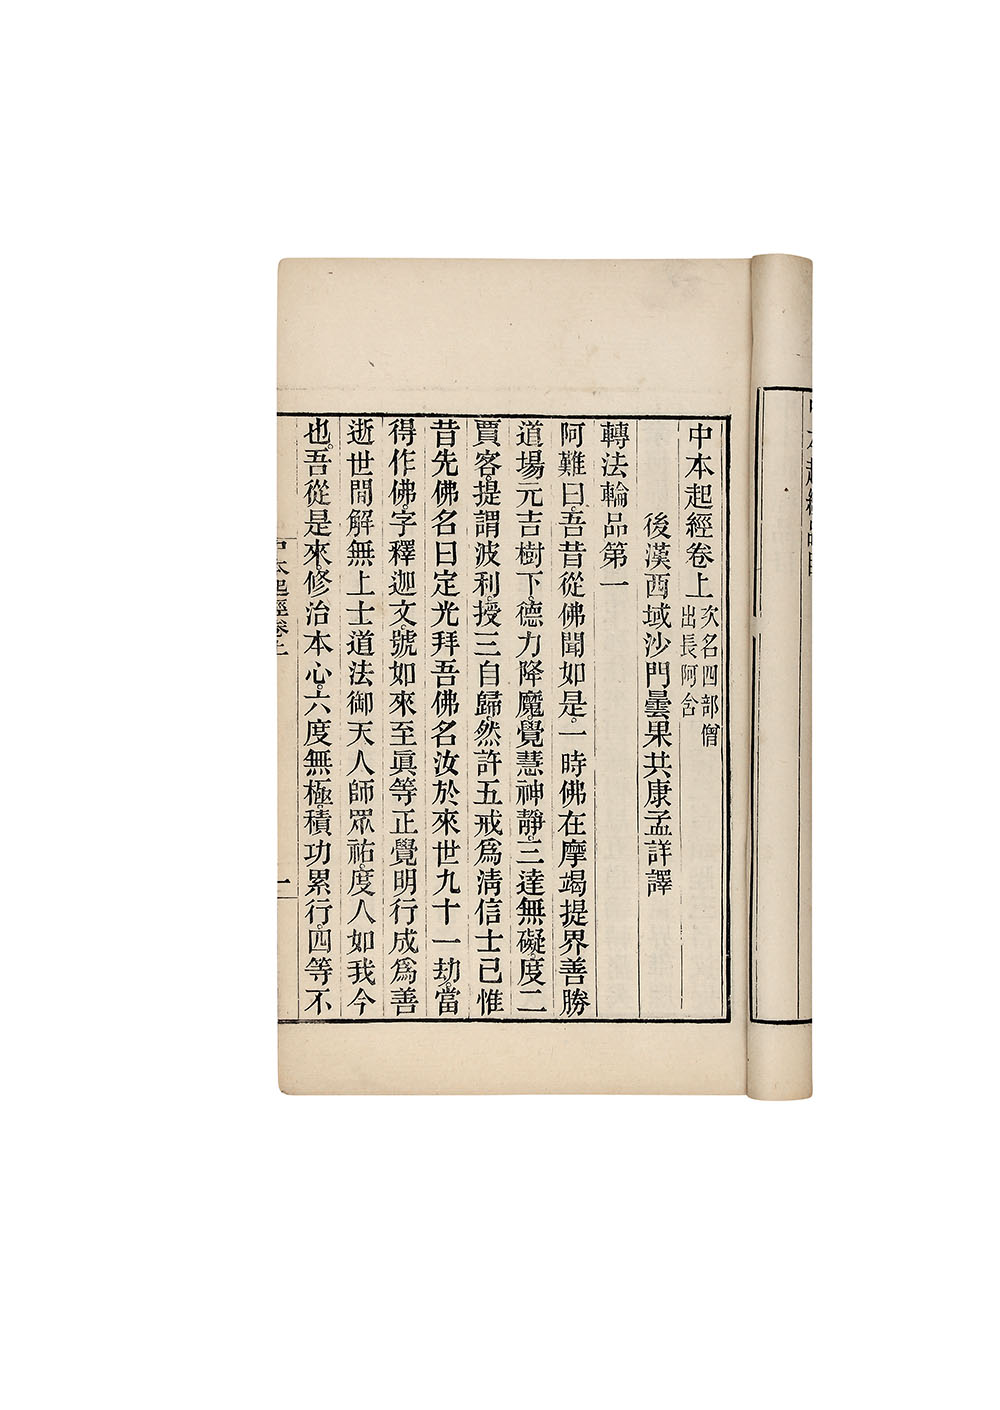 中本起經卷上 次名四部僧
出長阿含
後漢西域沙門曇果共康孟詳譯
轉法輪品第一
阿難曰。吾昔從佛聞如是。一時佛在摩竭提界善勝
道場元吉樹下。德力降魔。覺慧神靜。三達無礙。度二
賈客。提謂波利。授三自歸。然許五戒爲清信士已。惟
昔先佛名曰定光拜吾佛名汝於來世九十一劫。當
得作佛。字釋迦文。號如來至眞等正覺明行成爲善
逝世間解無上士道法御天人師眾祐。度人如我今
也。吾從是來。修治本心。六度無極。積功累行。四等不
中本起經卷上
一